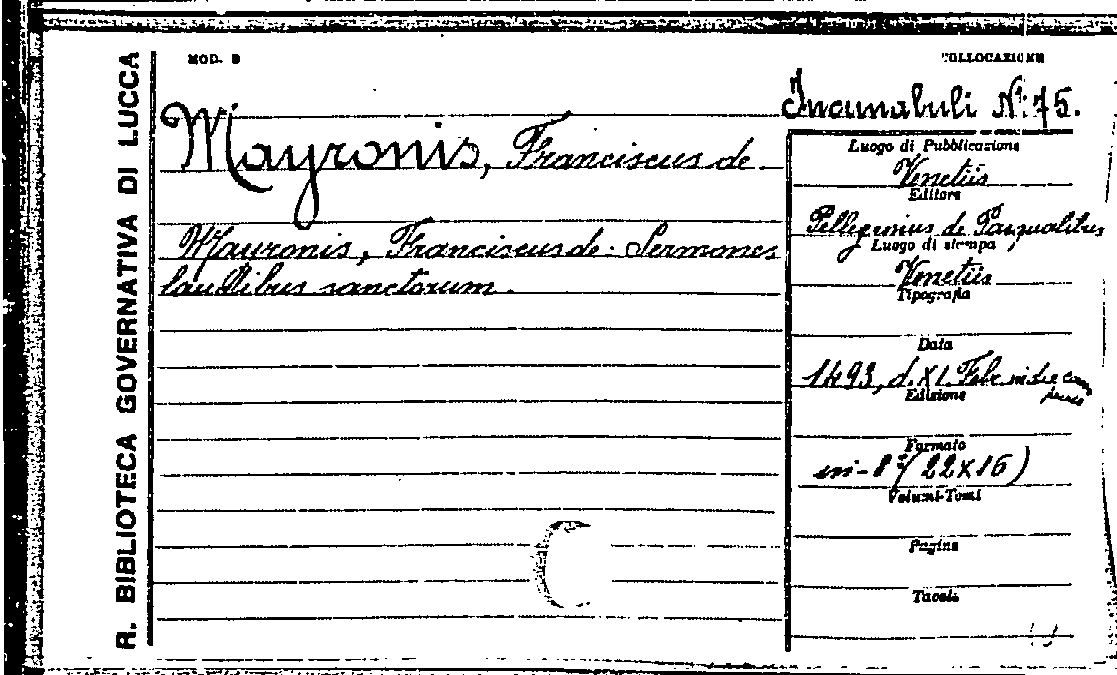 R. BIBLIOTECA GOVERNATIVA DI LUCCA
MOD. B
COLLOCAZIONE
Incunabuli N. 75.
Mayronis, Franciscus de
Mayronis, Franciscus de. Sermones
laudibus sanctorum.
Luogo di Pubblicazione
Venetiis
Editore
Pellegrinus de Pasqualibus
Luogo di stampa
Venetiis
Tipografia
Data
1493, d. XI. Febr.
Edizione
Formato
in-8° (22X16)
Volumi-Tomi
Pagine
Tavole